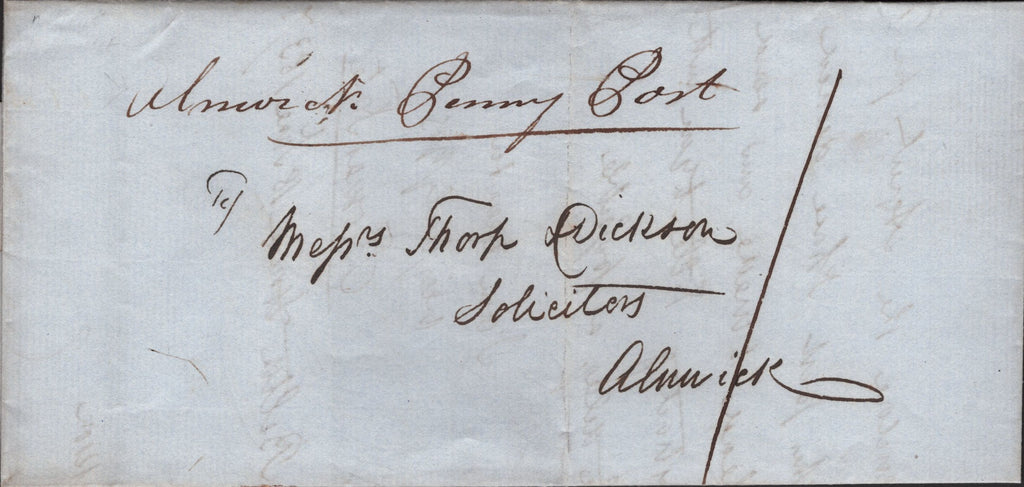 Alnwick Penny Post
To/
Messrs Thorp & Dickson
Soliciters
Alnwick